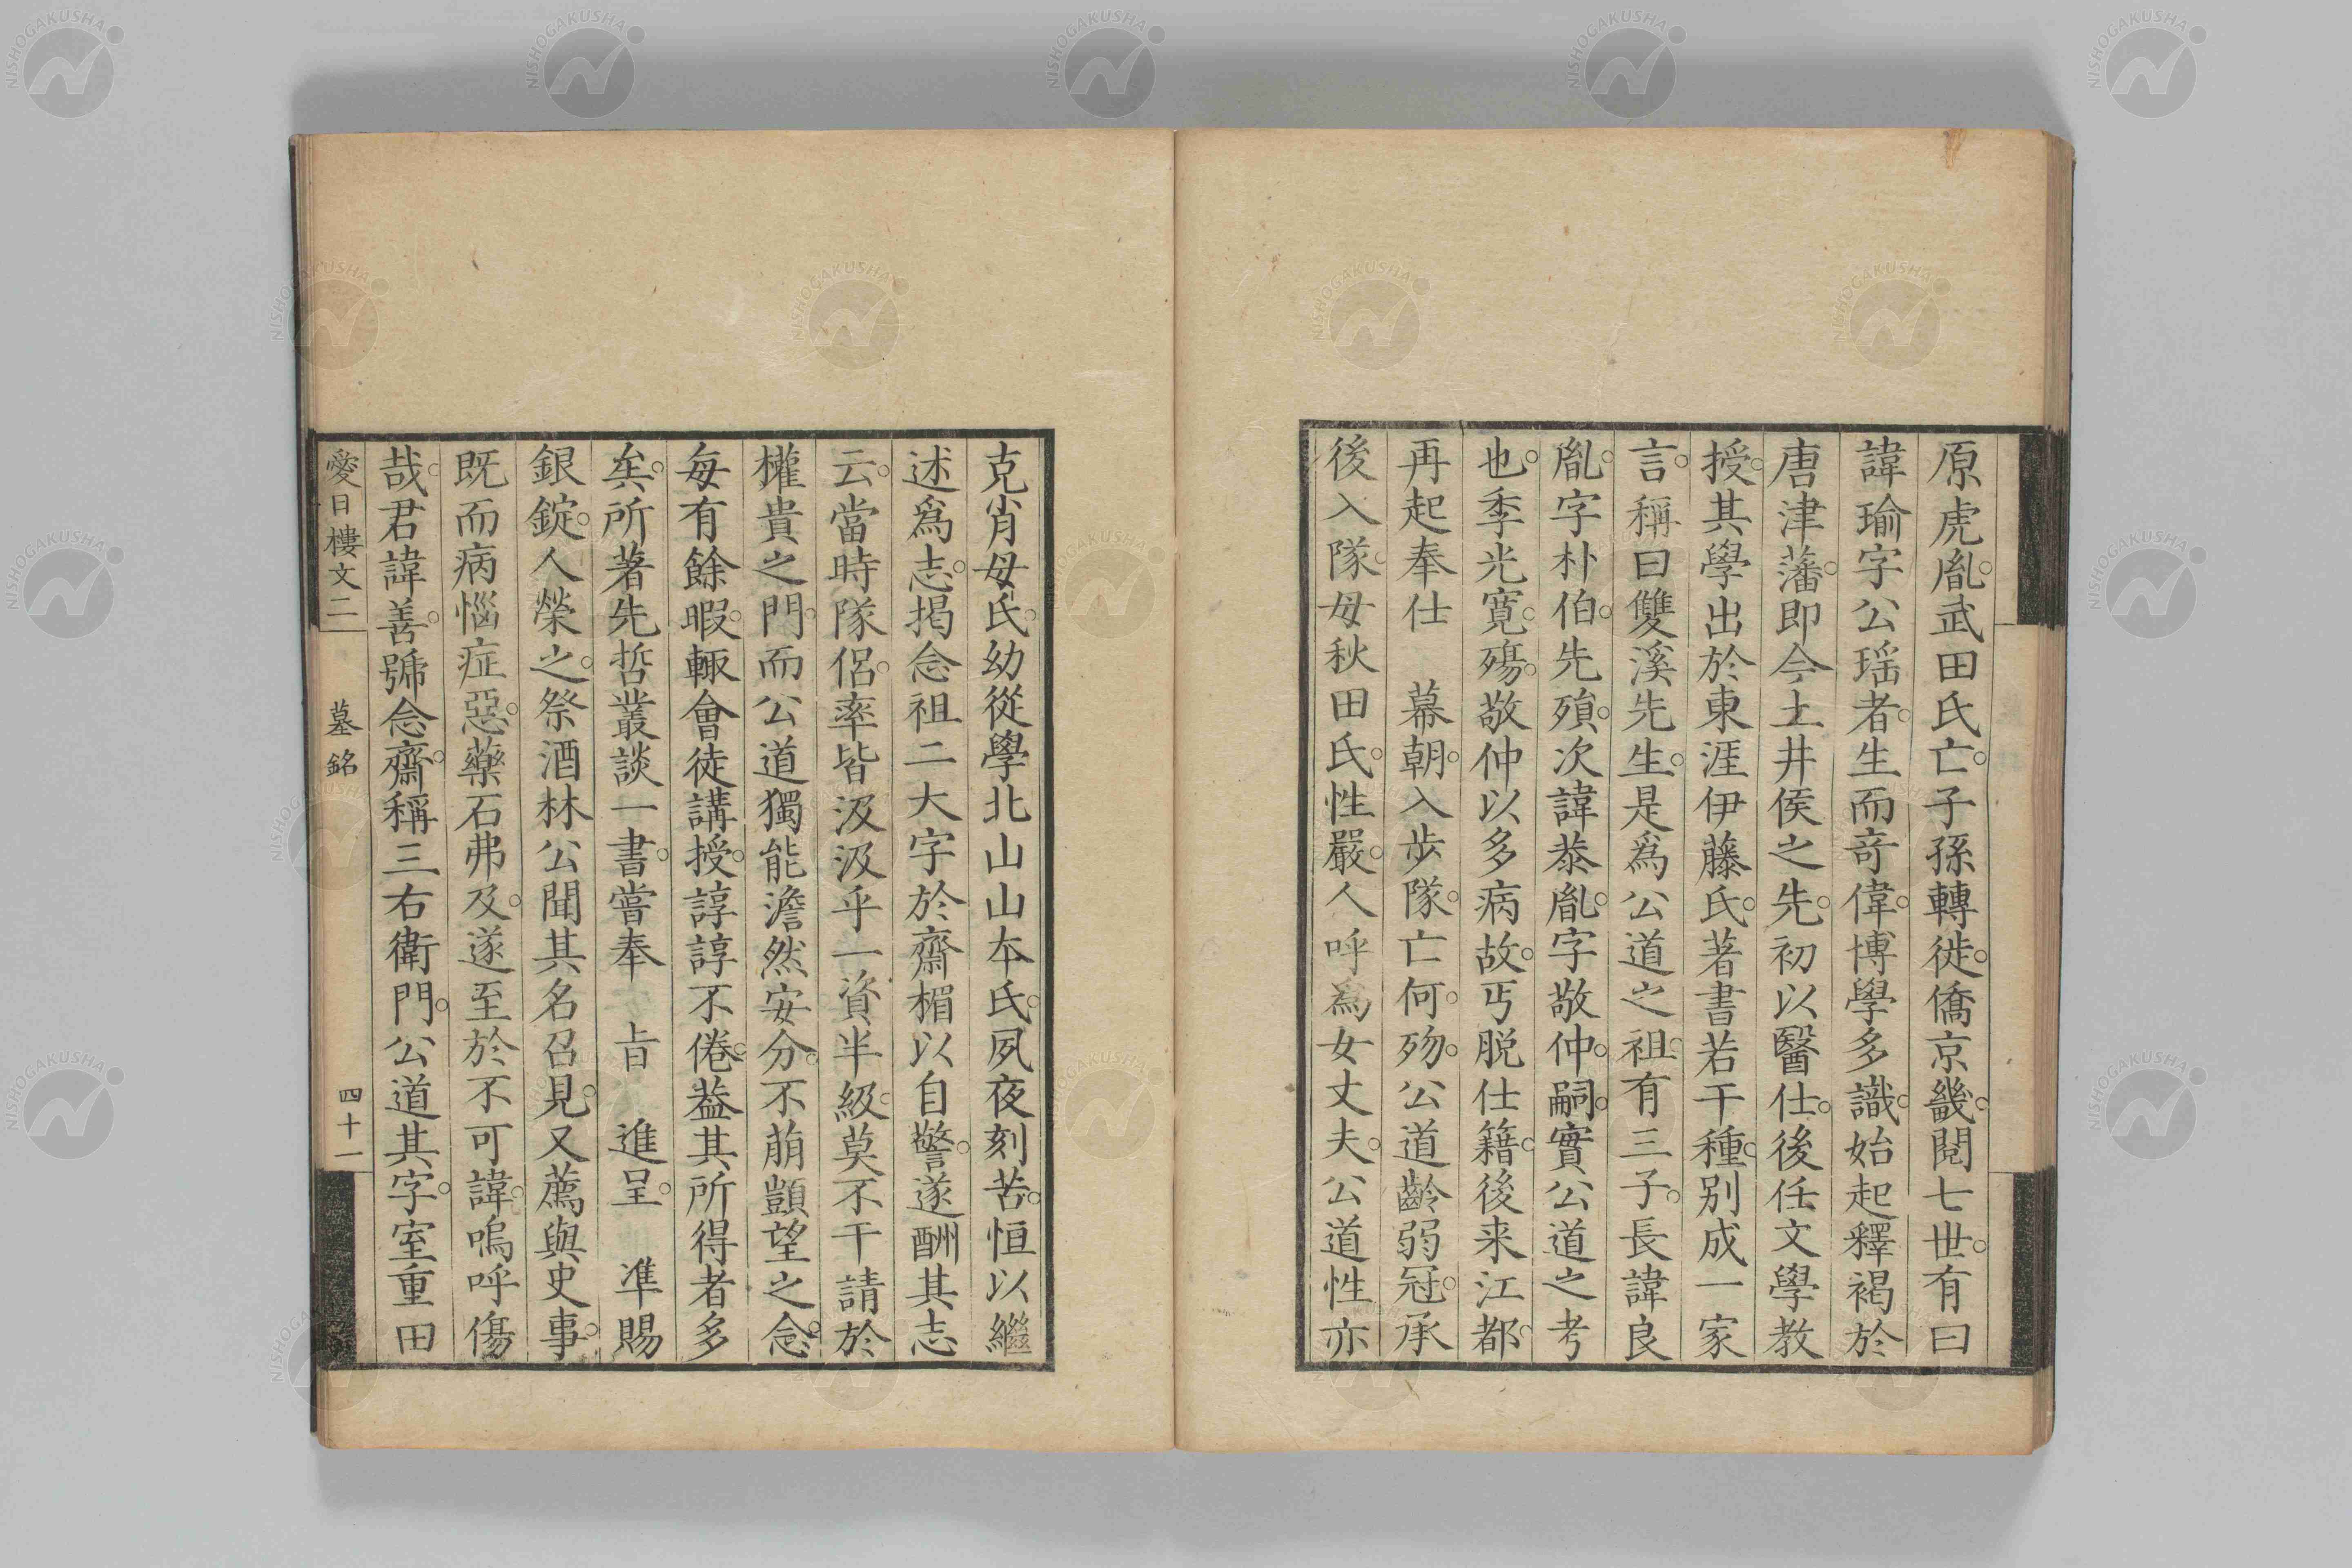 原虎胤。武田氏亡。子孫轉徙。僑京畿。閱七世。有曰
諱瑜字公瑶者。生而奇偉。博學多識。始起釋褐於
唐津藩。即今土井侯之先。初以醫仕。後任文學教
授。其學出於東涯伊藤氏。著書若干種。別成一家
言。稱曰雙溪先生。是爲公道之祖。有三子。長諱良
胤。字朴伯。先殞。次諱恭胤。字敬仲。嗣。實公道之考
也。季光寬。殤。敬仲以多病故。丐脱仕籍。後来江都。
再起奉仕　幕朝。入步隊。亡何。歿。公道齡弱冠。承
後入隊。母秋田氏。性嚴。人呼爲女丈夫。公道性亦
克肖母氏。幼從學北山山本氏。夙夜刻苦。恒以繼
述爲志。揭念祖二大字於齋楣以自警。遂酬其志
云。當時隊侶。率皆汲汲乎一資半級。莫不干請於
權貴之門。而公道獨能澹然安分。不萠顗望之念。
每有餘暇。輙會徒講授。諄諄不倦。葢其所得者多
矣。所著先哲叢談一書。嘗奉　旨　進呈。　準賜
銀錠。人榮之。祭酒林公聞其名召見。又薦與史事。
既而病惱症惡。藥石弗及。遂至於不可諱。嗚呼傷
哉。君諱善。號念齋。稱三右衛門。公道其字。室重田
愛日樓文二　墓銘　四十一
NISHOGAKUSHA